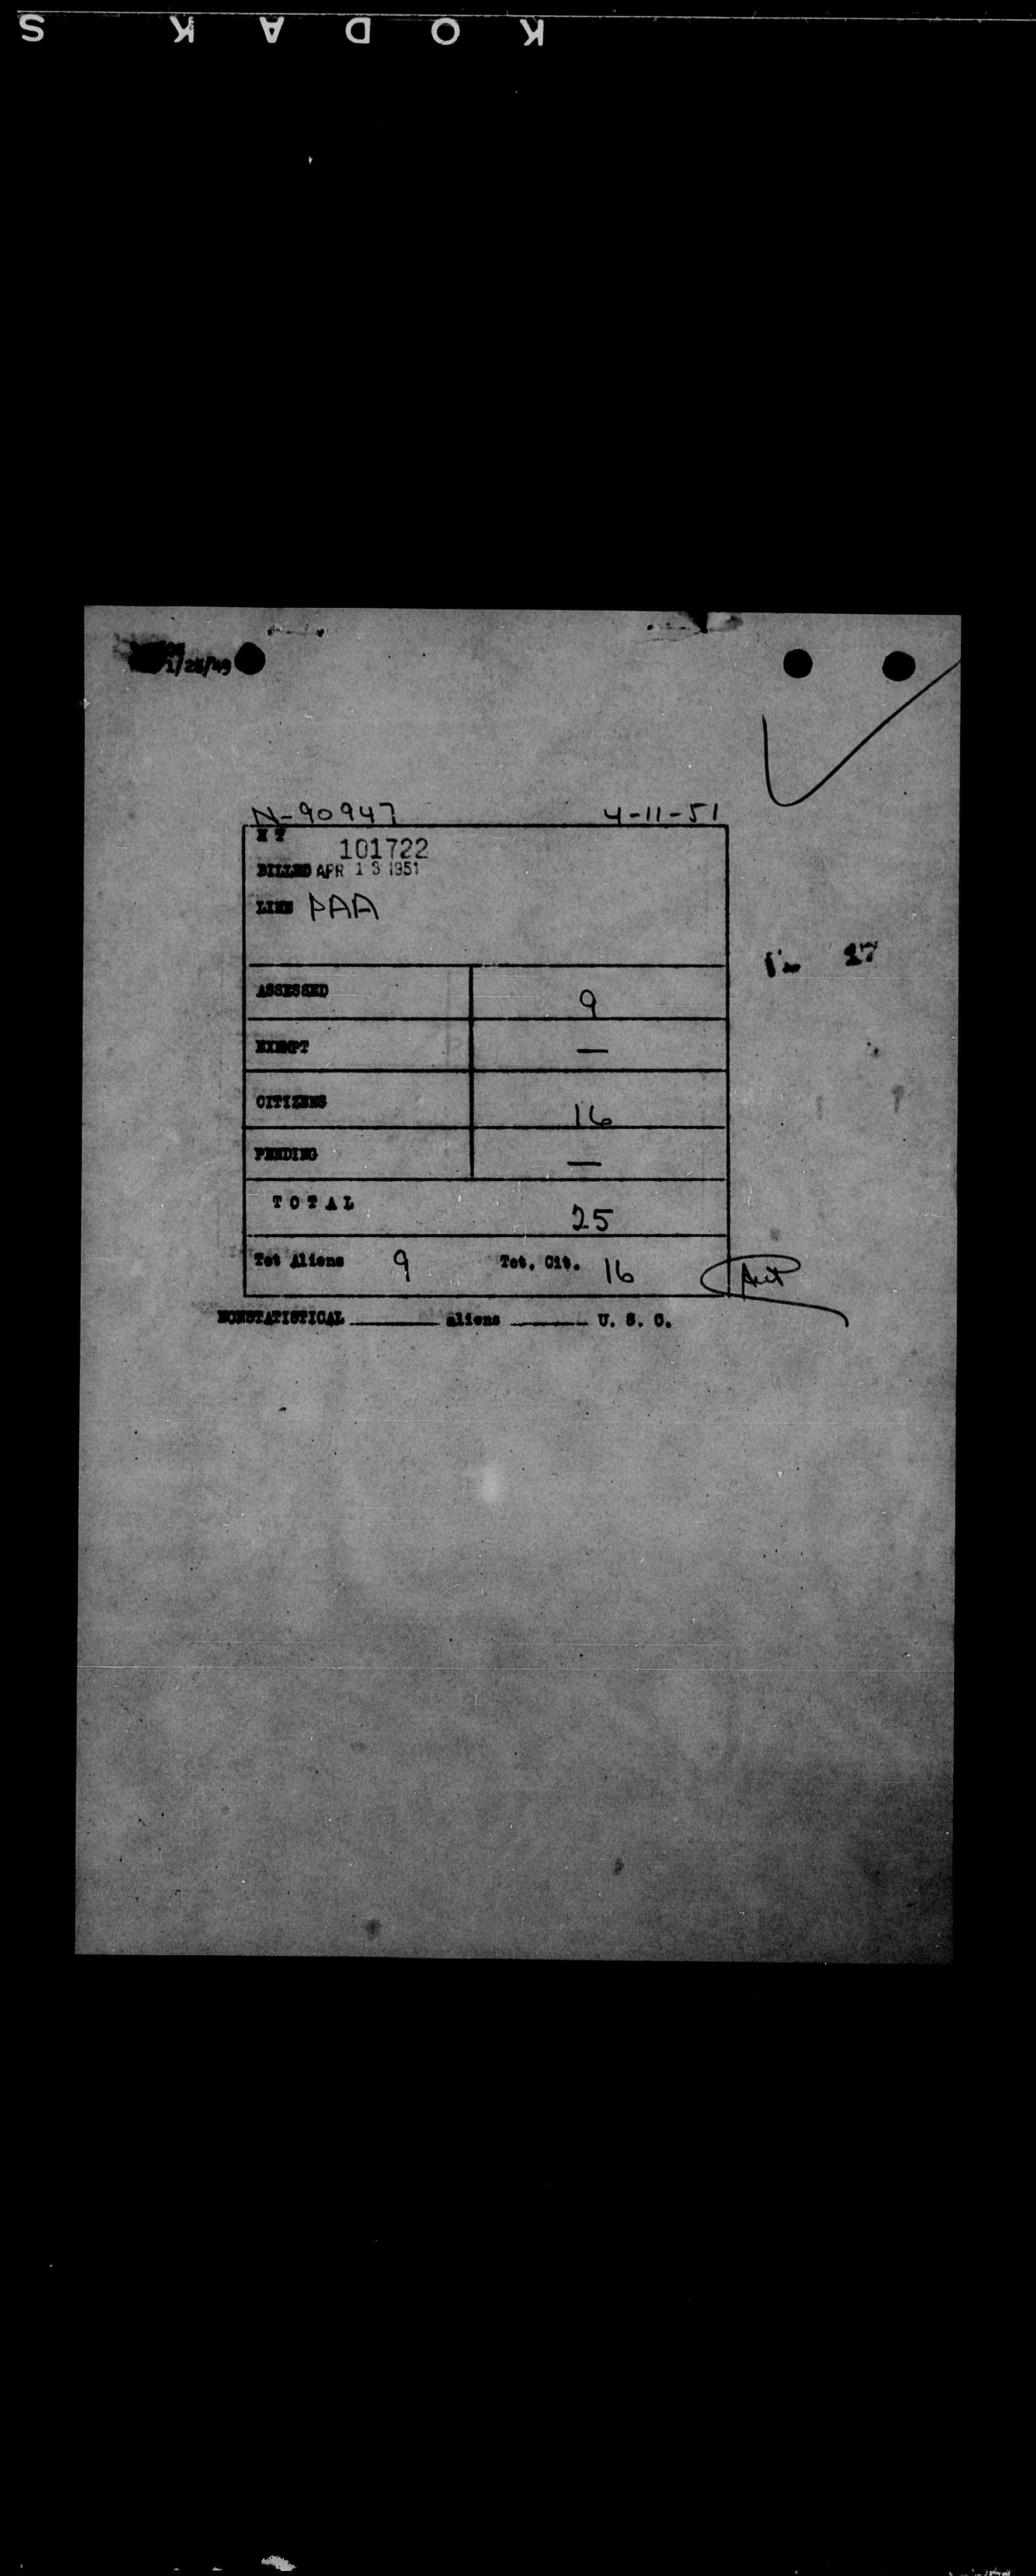 KODAK S
1/25/49
N-90947 4-11-51
H T 101722
BILLED APR 13 1951
LINE PAA
17
ASSESSED 9
EXEMPT —
CITIZENS 16
PENDING —
TOTAL 25
Tot Aliens 9 Tot. Cit. 16
NONSTATISTICAL ________ aliens ________ U. S. C.